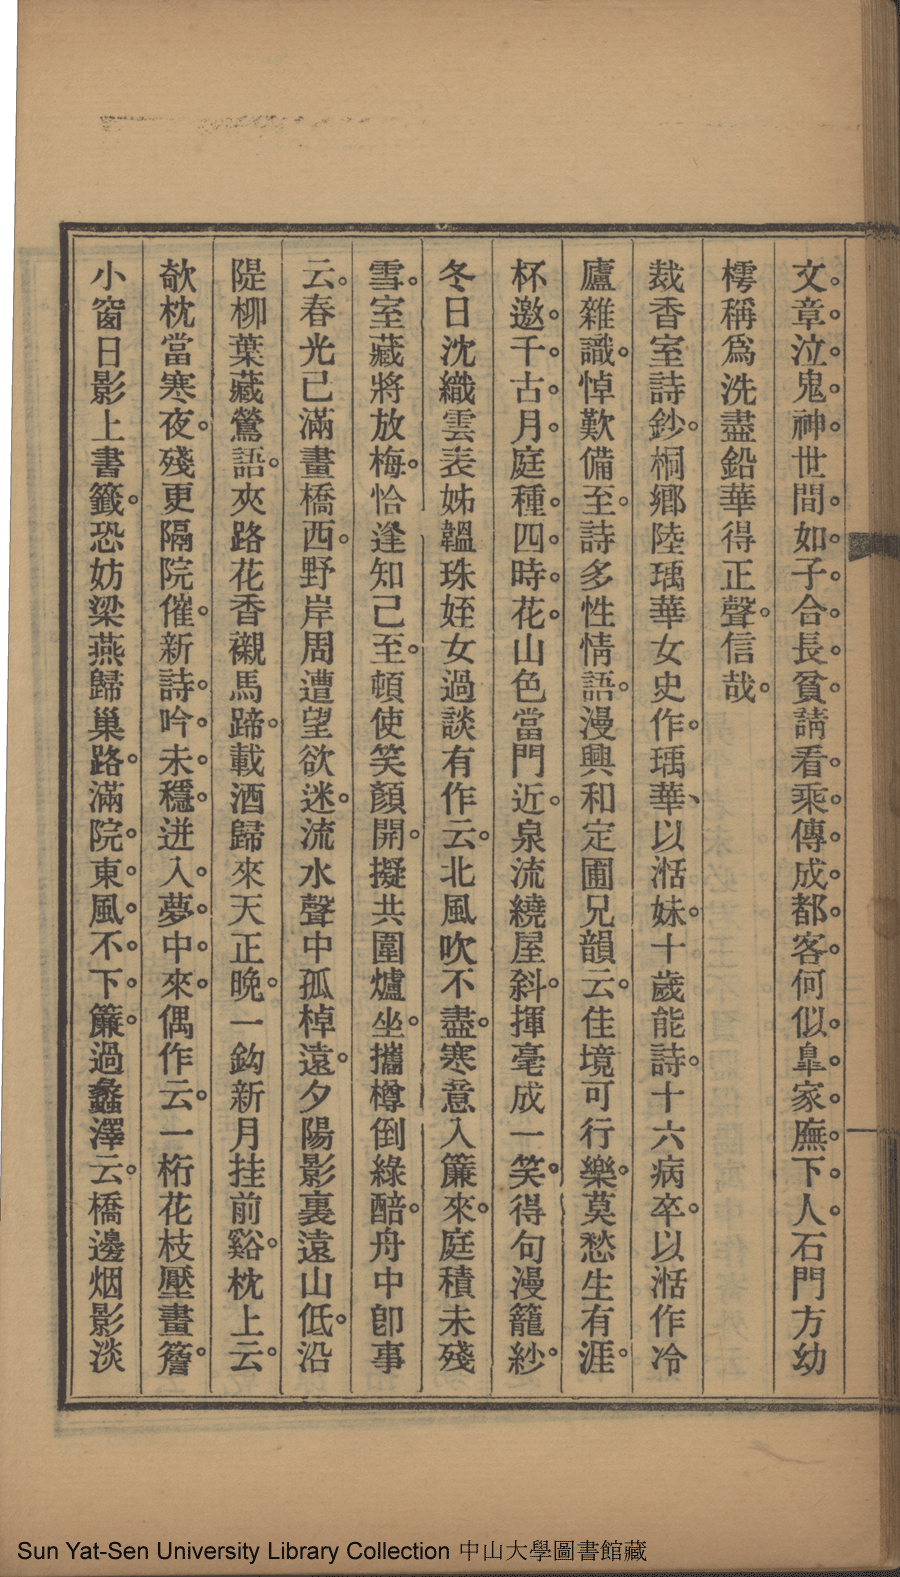 文章。泣鬼。神。世間。如。子。合。長。貧。請看。乘。傳。成。都。客。何似。臯。家。廡。下。人。石門方幼
樗稱爲洗盡鉛華得正聲。信哉。
裁香室詩鈔。桐鄉陸瑀華女史作。瑀華、以湉妹。十歲能詩。十六病卒。以湉作冷
廬雜識。悼歎備至。詩多性情語。漫興和定圃兄韻云。佳境可行樂。莫愁生有涯。
杯邀。千。古。月。庭種。四。時。花。山色當門近。泉流繞屋斜。揮毫成一笑。得句漫籠紗。
冬日沈織雲表姊韞珠姪女過談有作云。北風吹不盡。寒意入簾來。庭積未殘
雪。室藏將放梅。恰逢知己至。頓使笑顏開。擬共圍爐坐。攜樽倒綠醅。舟中卽事
云。春光已滿畫橋西。野岸周遭望欲迷。流水聲中孤棹遠。夕陽影裏遠山低。沿
隄柳葉藏鶯語。夾路花香襯馬蹄。載酒歸來天正晚。一鈎新月挂前谿。枕上云。
欹枕當寒夜。殘更隔院催。新詩。吟。未。穩。迸入。夢。中。來。偶作云。一桁花枝壓畫簷。
小窗日影上書籤。恐妨梁燕歸巢路。滿院。東。風。不。下。簾。過蠡澤云。橋邊烟影淡
Sun Yat-Sen University Library Collection 中山大學圖書館藏